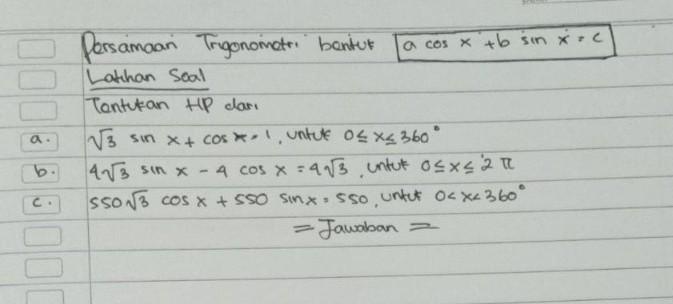 Persamaan Trigonometri bentuk a cos x + b sin x = c
Latihan Soal
Tentukan HP dari
a. √3 sin x + cos x = 1, untuk 0 ≤ x ≤ 360°
b. 4√3 sin x - 4 cos x = 4√3, untuk 0 ≤ x ≤ 2π
c. 550√3 cos x + 550 sin x = 550, untuk 0 < x < 360°
= Jawaban =